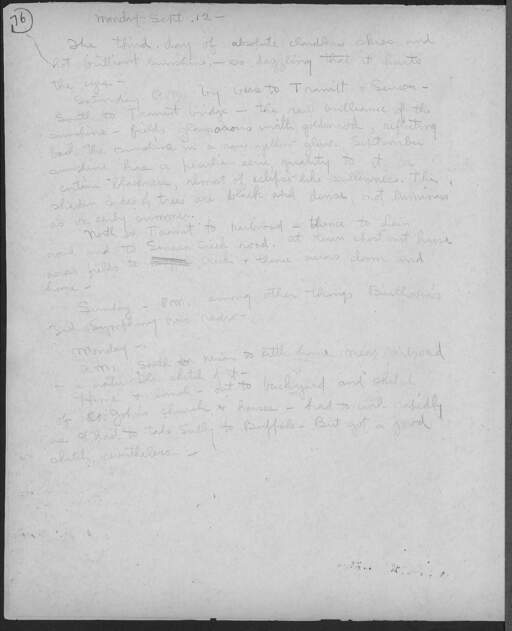 76
Monday - Sept. 12 -
The third day of absolute cloudless skies and
hot brilliant sunshine, - so dazzling that it hurts
the eyes -
Saturday P.M. by bus to Transit & Seneca -
South to Transit bridge - the real brilliance of the
sunshine - fields with goldenrod, reflecting
back the sunshine in a glow. September
sunshine has a peculiar quality to it a
certain blackness, almost of eclipse like The
shadow sides of trees are black and dense, not luminous
as in early summer.
North on Transit to railroad - thence to
road and to Seneca Creek road. at turn
across fields to creek & thence down and
home -
Sunday - P.M. among other things Beethoven's
3rd Symphony on radio -
Monday -
A.M. South on to little house near railroad
& a sketch of it -
Home & lunch - out to backyard and sketch
of St. John's church & houses - had to work rapidly
as I had to take Sally to Buffalo. But got a good
sketch nevertheless -